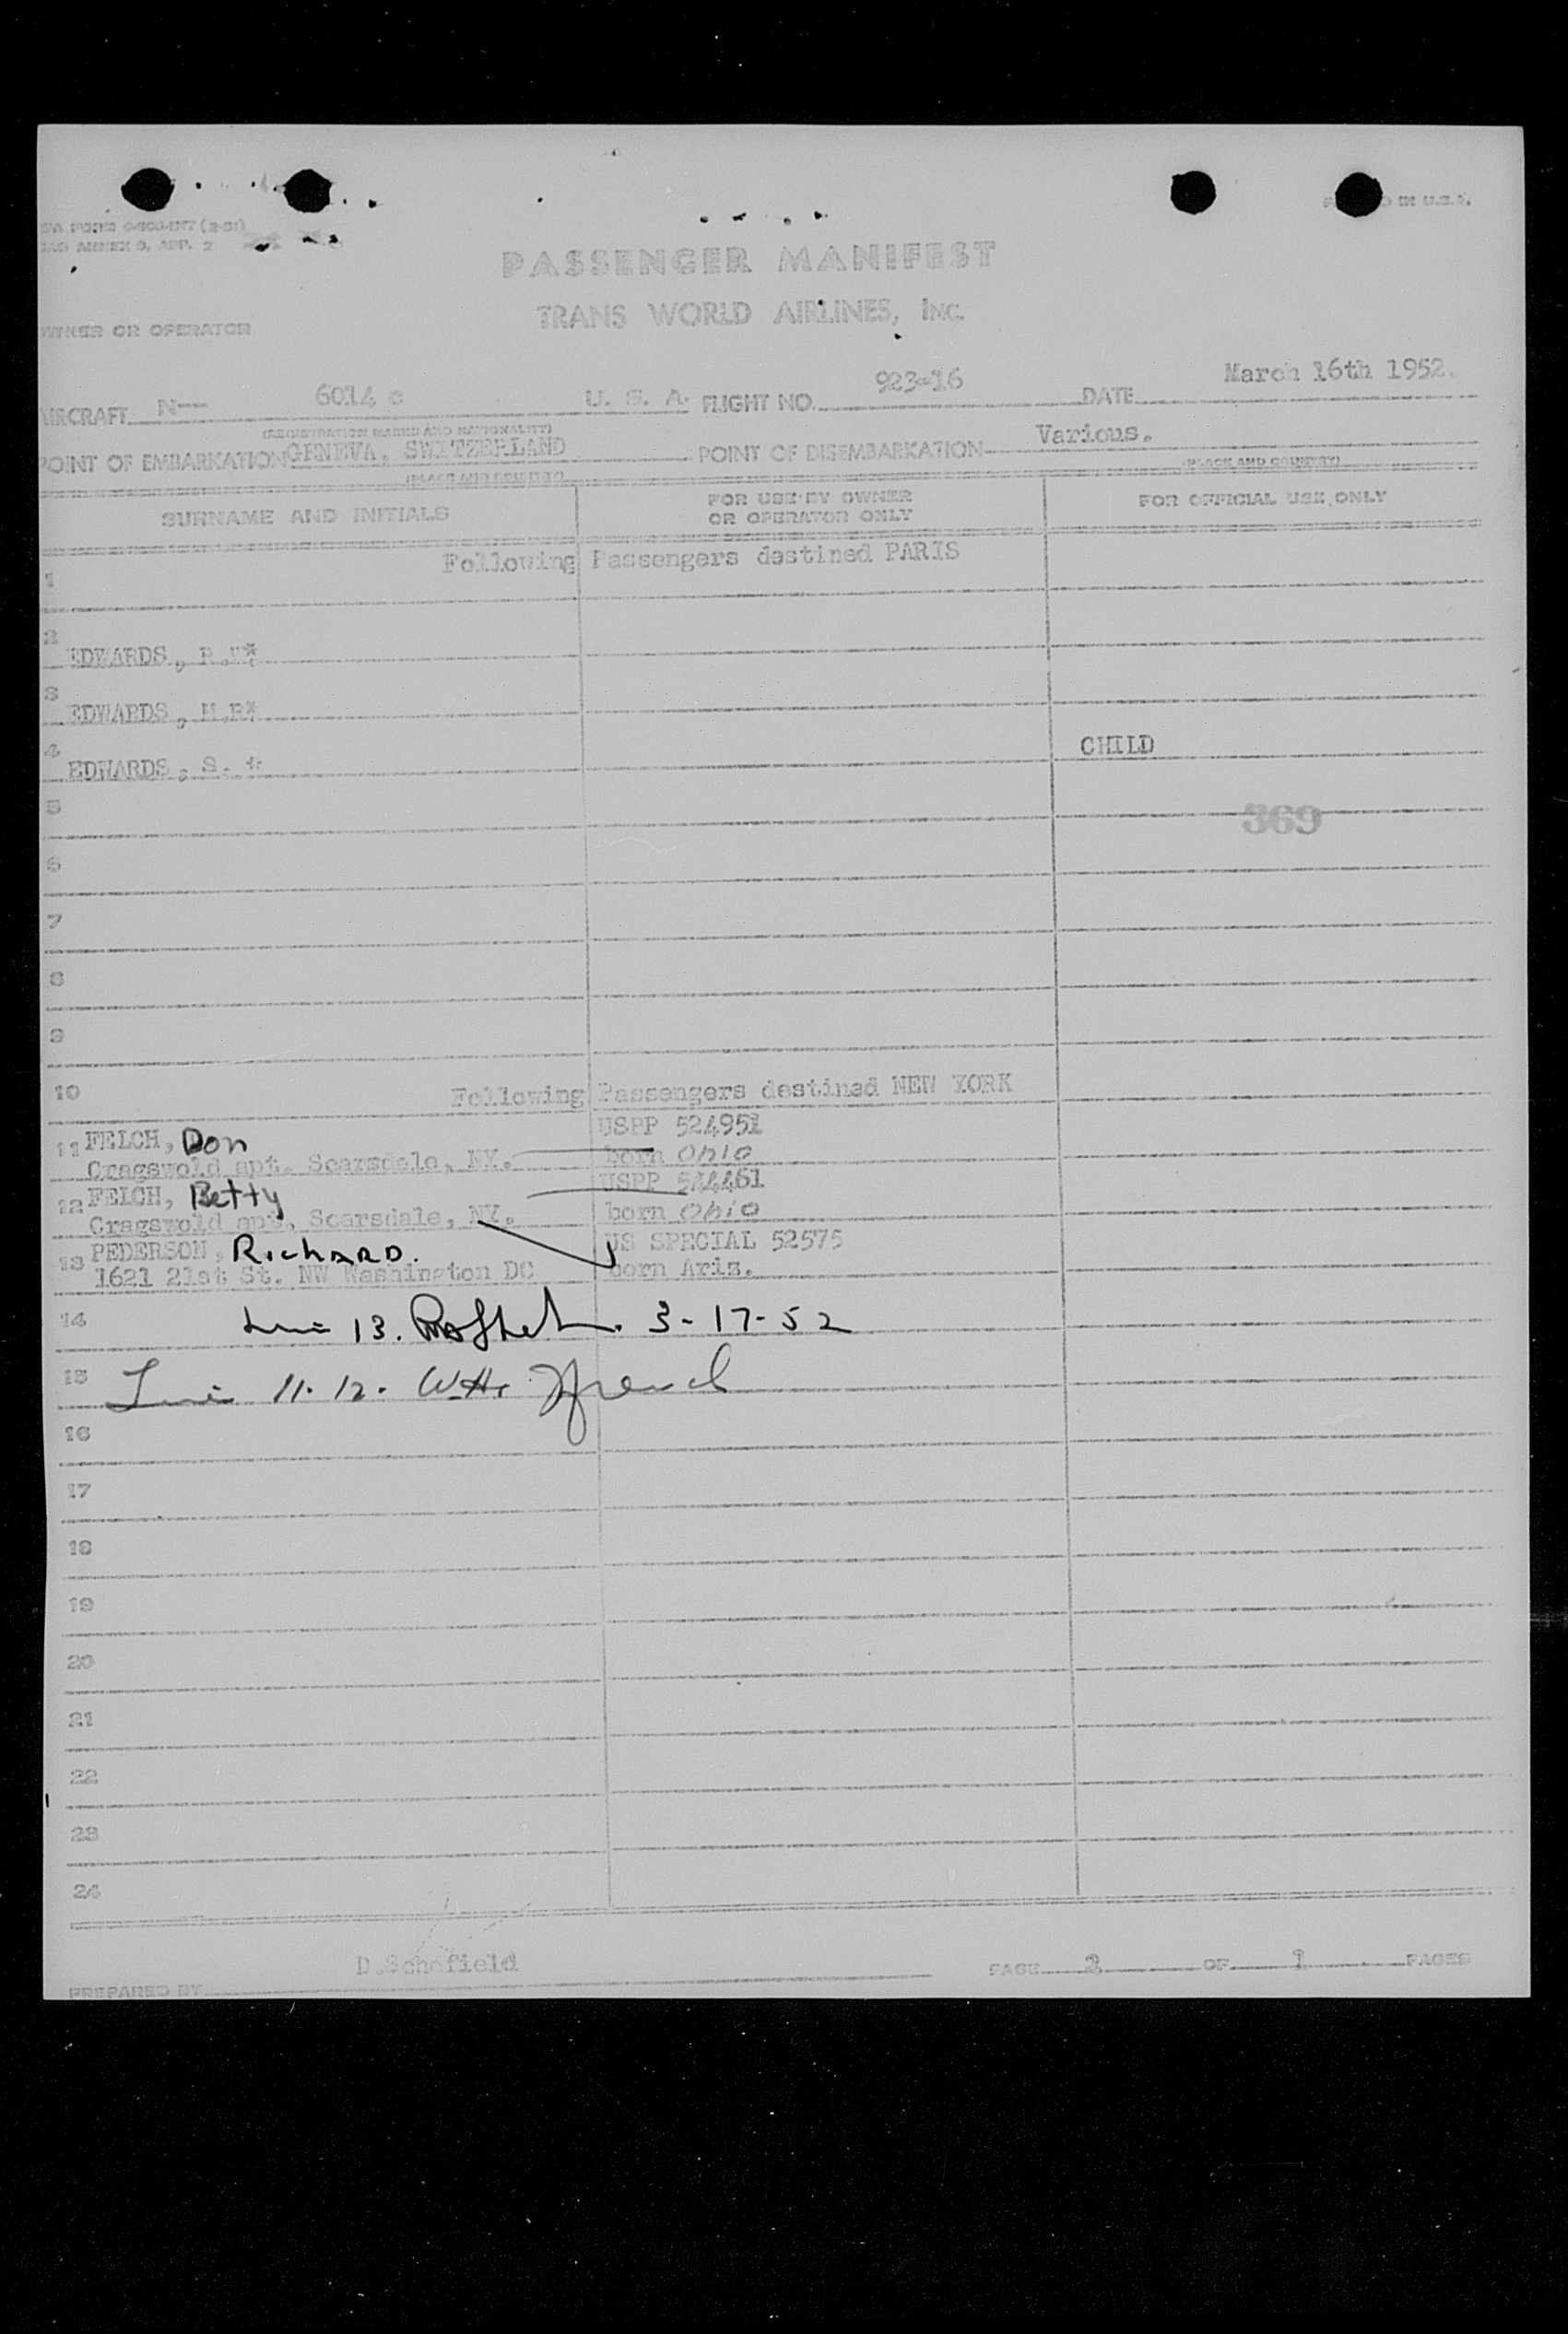 PRINTED IN U.S.A.
ANNEX 9, APP. 2
PASSENGER MANIFEST
TRANS WORLD AIRLINES, INC.
OWNER OR OPERATOR
AIRCRAFT N— 6014 c U. S. A. FLIGHT NO. 923-16 DATE March 16th 1952.
(REGISTRATION MARKS AND NATIONALITY)
POINT OF EMBARKATION GENEVA, SWITZERLAND POINT OF DISEMBARKATION Various.
(PLACE AND COUNTRY) (PLACE AND COUNTRY)
SURNAME AND INITIALS FOR USE BY OWNER OR OPERATOR ONLY FOR OFFICIAL USE ONLY
1 Following Passengers destined PARIS
2 EDWARDS,
3 EDWARDS,
4 EDWARDS, S. * CHILD
5
369
6
7
8
9
10 Following Passengers destined NEW YORK
11 FELCH, Don USPP 524951
Cragswold apt. Scarsdale, NY. born Ohio
12 FELCH, Betty USPP 544461
Cragswold apt. Scarsdale, NY. born Ohio
13 PEDERSON, RICHARD. US SPECIAL 52575
1621 21st St. NW Washington DC born Ariz.
14 Line 13. 3-17-52
15 Line 11-12. W.H.
16
17
18
19
20
21
22
23
24
PREPARED BY D.Schofield PAGE 2 OF 1 PAGES